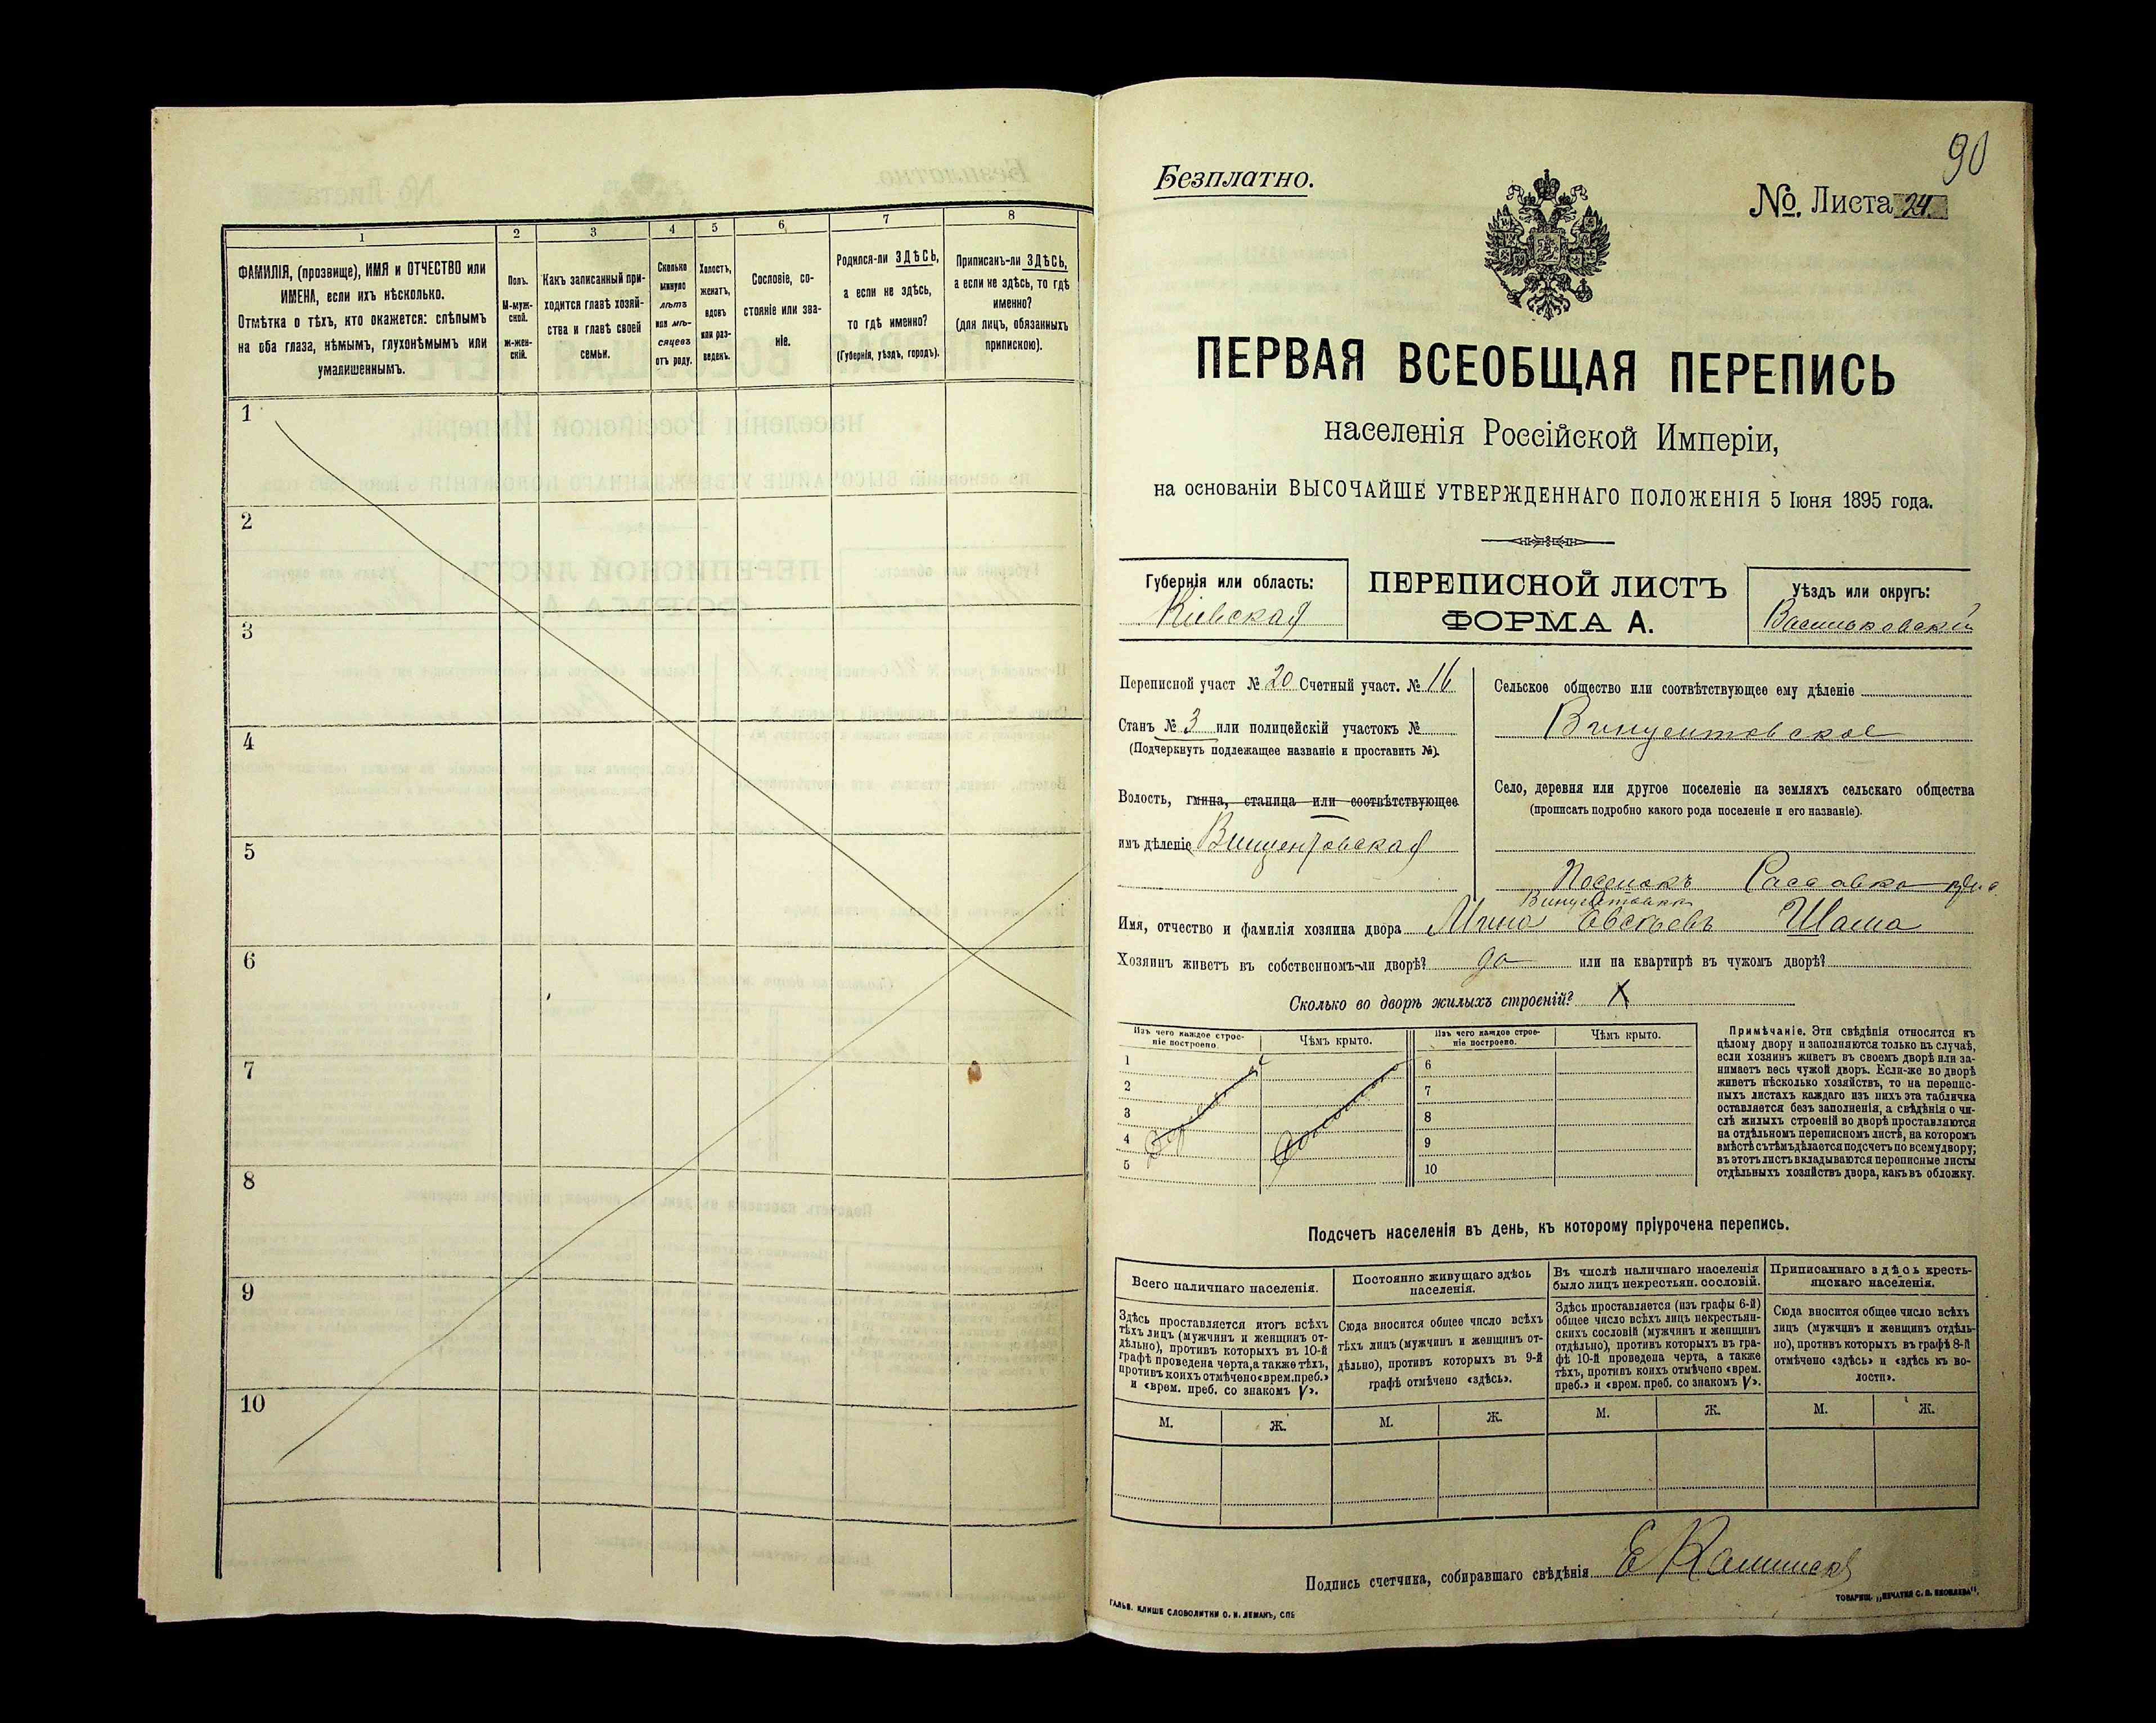 1
2
3
4
5
6
7
8
ФАМИЛІЯ, (прозвище), ИМЯ и ОТЧЕСТВО или
ИМЕНА, если ихъ нѣсколько.
Отмѣтка о тѣхъ, кто окажется: слѣпымъ
на оба глаза, нѣмымъ, глухонѣмымъ или
умалишеннымъ.
Полъ.
М-муж-
ской.
Ж-жен-
скій.
Какъ записанный при-
ходится главѣ хозяй-
ства и главѣ своей
семьи.
Сколько
минуло
лѣтъ
или мѣ-
сяцевъ
отъ роду.
Холостъ,
женатъ,
вдовъ
или раз-
веденъ.
Сословіе, со-
стояніе или зва-
ніе.
Родился-ли ЗДѢСЬ,
а если не здѣсь,
то гдѣ именно?
(Губернія, уѣздъ, городъ).
Приписанъ-ли ЗДѢСЬ,
а если не здѣсь, то гдѣ
именно?
(для лицъ, обязанныхъ
припискою).
1
2
3
4
5
6
7
8
9
10
90
Безплатно.
№ Листа 24.
ПЕРВАЯ ВСЕОБЩАЯ ПЕРЕПИСЬ
населенія Россійской Имперіи,
на основаніи ВЫСОЧАЙШЕ УТВЕРЖДЕННАГО ПОЛОЖЕНІЯ 5 Іюня 1895 года.
Губернія или область:
Кіевская
ПЕРЕПИСНОЙ ЛИСТЪ
ФОРМА А.
Уѣздъ или округъ:
Васильковскій
Переписной участ № 20 Счетный участ. № 16
Станъ № 3 или полицейскій участокъ №
(Подчеркнуть подлежащее названіе и проставить №).
Волость, гмина, станица или соотвѣтствующее
имъ дѣленіе Винцентовская
Сельское общество или соотвѣтствующее ему дѣленіе
Винцентовское
Село, деревня или другое поселеніе на земляхъ сельскаго общества
(прописать подробно какого рода поселеніе и его названіе).
Поселокъ Рассавка
Имя, отчество и фамилія хозяина двора Мина Евсѣевъ Шаша
Хозяинъ живетъ въ собственномъ-ли дворѣ? да или на квартирѣ въ чужомъ дворѣ?
Сколько во дворѣ жилыхъ строеній? X
Изъ чего каждое строе-
ніе построено.
Чѣмъ крыто.
Изъ чего каждое строе-
ніе построено.
Чѣмъ крыто.
1
2
3
4
5
6
7
8
9
10
Примѣчаніе. Эти свѣдѣнія относятся къ
цѣлому двору и заполняются только въ случаѣ,
если хозяинъ живетъ въ своемъ дворѣ или за-
нимаетъ весь чужой дворъ. Если-же во дворѣ
живетъ нѣсколько хозяйствъ, то на перепис-
ныхъ листахъ каждаго изъ нихъ эта табличка
оставляется безъ заполненія, а свѣдѣнія о чи-
слѣ жилыхъ строеній во дворѣ проставляются
на отдѣльномъ переписномъ листѣ, на которомъ
вмѣстѣ съ тѣмъ дѣлается подсчетъ по всему двору;
въ этотъ листъ вкладываются переписные листы
отдѣльныхъ хозяйствъ двора, какъ въ обложку.
Подсчетъ населенія въ день, къ которому пріурочена перепись.
Всего наличнаго населенія.
Здѣсь проставляется итогъ всѣхъ
тѣхъ лицъ (мужчинъ и женщинъ от-
дѣльно), противъ которыхъ въ 10-й
графѣ проведена черта, а также тѣхъ,
противъ коихъ отмѣчено «врем. преб.»
и «врем. преб. со знакомъ V».
Постоянно живущаго здѣсь
населенія.
Сюда вносится общее число всѣхъ
тѣхъ лицъ (мужчинъ и женщинъ от-
дѣльно), противъ которыхъ въ 9-й
графѣ отмѣчено «здѣсь».
Въ числѣ наличнаго населенія
было лицъ некрестьян. сословій.
Здѣсь проставляется (изъ графы 6-й)
общее число всѣхъ лицъ некрестьян-
скихъ сословій (мужчинъ и женщинъ
отдѣльно), противъ которыхъ въ гра-
фѣ 10-й проведена черта, а также
тѣхъ, противъ коихъ отмѣчено «врем.
преб.» и «врем. преб. со знакомъ V».
Приписаннаго здѣсь кресть-
янскаго населенія.
Сюда вносится общее число всѣхъ
лицъ (мужчинъ и женщинъ отдѣль-
но), противъ которыхъ въ графѣ 8-й
отмѣчено «здѣсь» и «здѣсь къ во-
лости».
М. Ж. М. Ж. М. Ж. М. Ж.
Подпись счетчика, собиравшаго свѣдѣнія
ГАЛЬВ. КЛИШЕ СЛОВОЛИТНИ О. И. ЛЕМАНЪ, СПБ
ТОВАРИЩ. „ПЕЧАТНЯ С. П. ЯКОВЛЕВА".